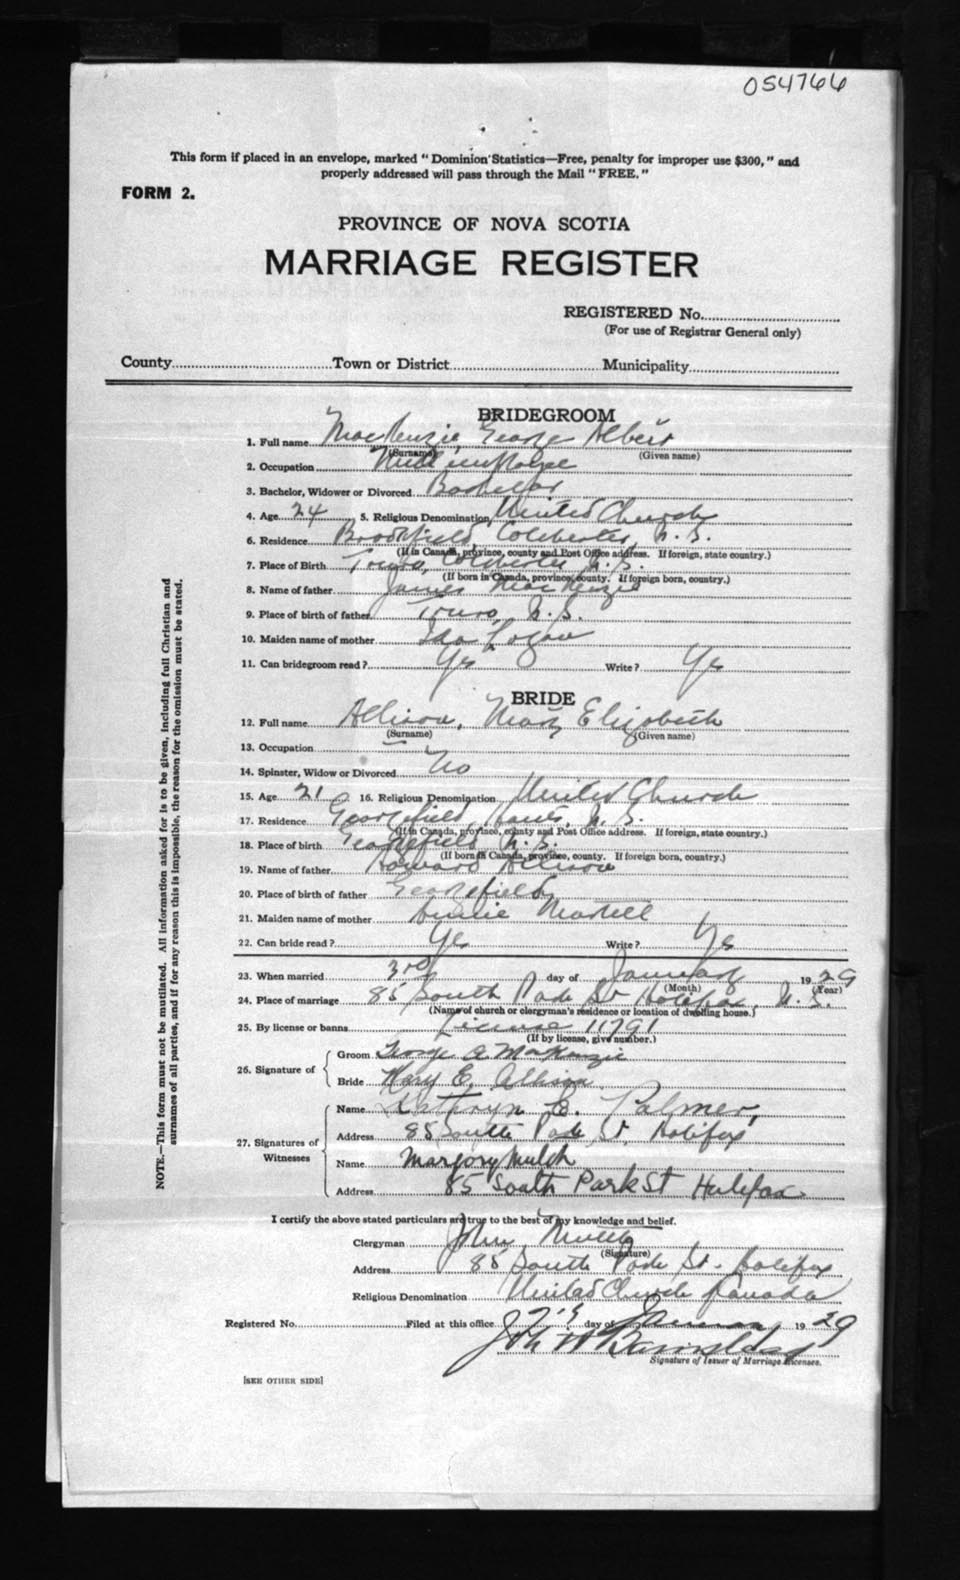 054766
This form if placed in an envelope, marked "Dominion Statistics—Free, penalty for improper use $300," and
properly addressed will pass through the Mail "FREE."
FORM 2.
PROVINCE OF NOVA SCOTIA
MARRIAGE REGISTER
REGISTERED No.
(For use of Registrar General only)
County Town or District Municipality
BRIDEGROOM
1. Full name MacKenzie, George Albert
(Surname) (Given name)
2. Occupation
3. Bachelor, Widower or Divorced Bachelor
4. Age 24 5. Religious Denomination United Church
6. Residence Brookfield Colchester, N.S.
(If in Canada, province, county and Post Office address. If foreign, state country.)
7. Place of Birth Truro, Colchester N.S.
(If born in Canada, province, county. If foreign born, country.)
8. Name of father James MacKenzie
9. Place of birth of father Truro, N.S.
10. Maiden name of mother Ida Logan
11. Can bridegroom read? Yes Write? Yes
BRIDE
12. Full name Allison, Mary Elizabeth
(Surname) (Given name)
13. Occupation —
14. Spinster, Widow or Divorced No
15. Age 21 16. Religious Denomination United Church
17. Residence Georgefield, Hants, N.S.
(If in Canada, province, county and Post Office address. If foreign, state country.)
18. Place of birth Georgefield, N.S.
(If born in Canada, province, county. If foreign born, country.)
19. Name of father Howard Allison
20. Place of birth of father Georgefield
21. Maiden name of mother Martell
22. Can bride read? Yes Write? Yes
23. When married 3rd day of January 1929
(Month) (Year)
24. Place of marriage 85 South Park St Halifax, N.S.
(Name of church or clergyman's residence or location of dwelling house.)
25. By license or banns License 11791
(If by license, give number.)
26. Signature of
Groom George A MacKenzie
Bride Mary E. Allison
27. Signatures of Witnesses
Name Kathryn E. Palmer,
Address 85 South Park St, Halifax
Name Marjory Mutch
Address 85 South Park St Halifax
I certify the above stated particulars are true to the best of my knowledge and belief.
Clergyman John Mutch
(Signature)
Address 85 South Park St. Halifax
Religious Denomination United Church Canada
Registered No. Filed at this office day of 1929
Signature of Issuer of Marriage Licenses.
[SEE OTHER SIDE]
NOTE.—This form must not be mutilated. All information asked for is to be given, including full Christian and
surnames of all parties, and if for any reason this is impossible, the reason for the omission must be stated.